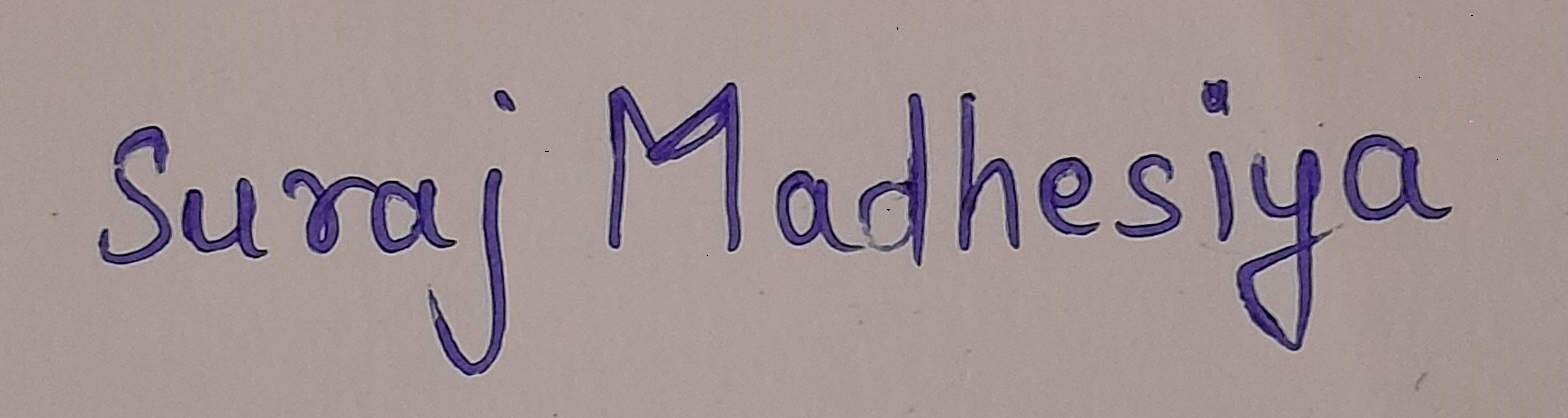 Suraj Madhesiya